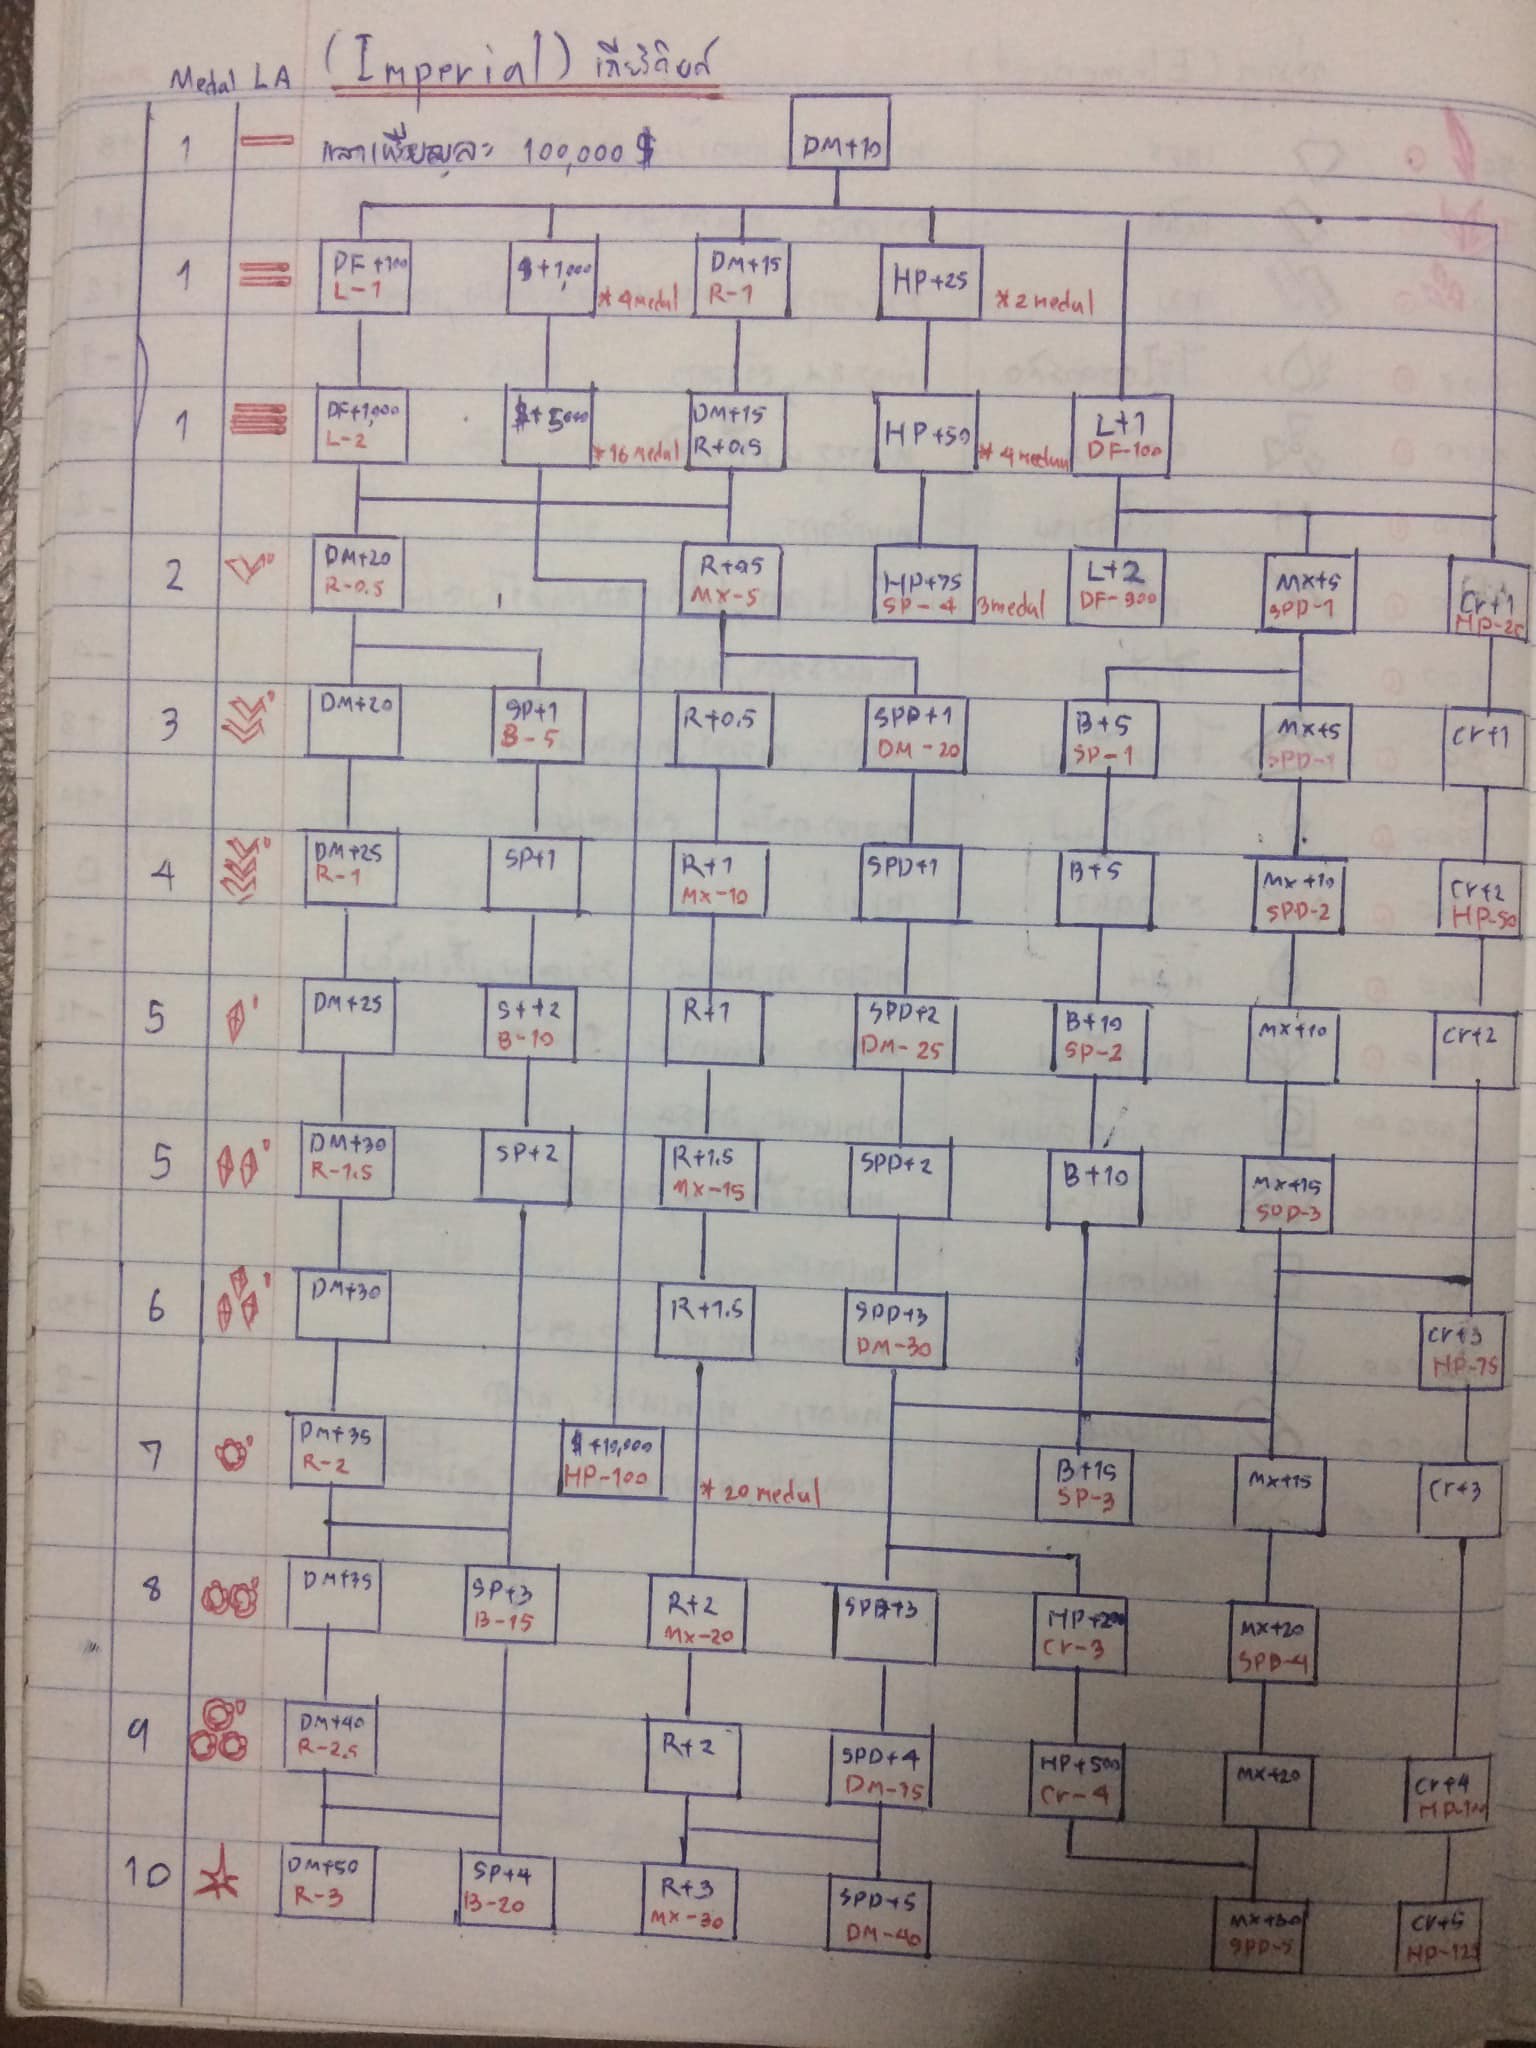 Medal LA (Imperial) เกียรติยศ
1 100,000 $ DM+10
1 DF+100 $+1,000 DM+15 HP+25
L-1 *4 medul R-1 *2 medul
1 DF+1,000 $+5000 DM+15 HP+50 L+1
L-2 *16 medul R+0.5 *4 medul DF-100
2 DM+20 R+0.5 HP+75 L+2 MX+5 Cr+1
R-0.5 MX-5 SP-4 3medul DF-900 SPD-1 HP-25
3 DM+20 SP+1 R+0.5 SPD+1 B+5 MX+5 Cr+1
B-5 DM-20 SP-1 SPD-1
4 DM+25 SP+1 R+1 SPD+1 B+5 MX+10 Cr+2
R-1 MX-10 SPD-2 HP-50
5 DM+25 S++2 R+1 SPD+2 B+10 MX+10 Cr+2
B-10 DM-25 SP-2
5 DM+30 SP+2 R+1.5 SPD+2 B+10 MX+15
R-1.5 MX-15 SPD-3
6 DM+30 R+1.5 SPD+3 Cr+3
DM-30 HP-75
7 DM+35 $+10,000 B+15 MX+15 Cr+3
R-2 HP-100 *20 medul SP-3
8 DM+35 SP+3 R+2 SPD+3 HP+200 MX+20
B-15 MX-20 Cr-3 SPD-4
9 DM+40 R+2 SPD+4 HP+500 MX+20 Cr+4
R-2.5 DM-75 Cr-4 HP-100
10 DM+50 SP+4 R+3 SPD+5 MX+30 Cr+5
R-3 B-20 MX-30 DM-40 SPD-5 HP-125